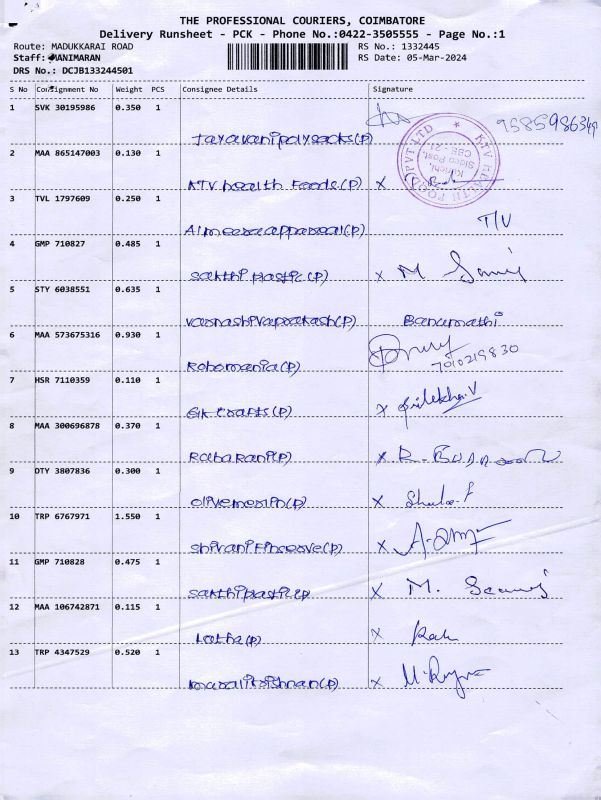 THE PROFESSIONAL COURIERS, COIMBATORE
Delivery Runsheet - PCK - Phone No.:0422-3505555 - Page No.:1
Route: MADUKKARAI ROAD RS No.: 1332445
Staff: MANIMARAN RS Date: 05-Mar-2024
DRS No.: DCJB133244501
S No Consignment No Weight PCS Consignee Details Signature
1 SVK 30195986 0.350 1
Jayavani polysacks(P)
2 MAA 865147003 0.130 1
KTV health Foods(P) X
KTV HEALTH FOOD PVT LTD
Sidco Post,
CBE - 21
3 TVL 1797609 0.250 1
Almeera appareal(P) T/V
4 GMP 710827 0.485 1
Sakthi plastic(P) X M
5 STY 6038551 0.635 1
Varnashivaprakash(P) Banumathi
6 MAA 573675316 0.930 1
Robomania(P) 7010219830
7 HSR 7110359 0.110 1
GK Crafts(P) X
8 MAA 300696878 0.370 1
Rabarani(P) X R.
9 DTY 3807836 0.300 1
(P) X
10 TRP 6767971 1.550 1
(P) X
11 GMP 710828 0.475 1
Sakthi plastic(P X M.
12 MAA 106742871 0.115 1
Latha(P) X
13 TRP 4347529 0.520 1
muralikrishnan(P) X